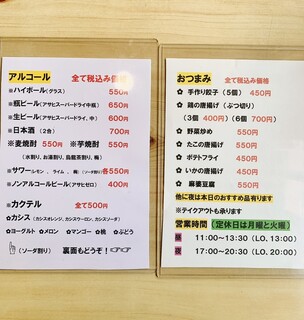 アルコール 全て税込み価格
※ハイボール(グラス) 550円
※瓶ビール(アサヒスーパードライ中瓶) 650円
※生ビール(アサヒスーパードライ、中) 600円
※日本酒(2合) 700円
※麦焼酎 550円 ※芋焼酎 550円
(水割り、お湯割り、烏龍茶割り、等)
※サワー(レモン、ライム、 )各550円
※ノンアルコールビール(アサヒゼロ) 400円
※カクテル 全て500円
✿カシス(カシスオレンジ、カシスウーロン、カシスソーダ)
✿ヨーグルト ✿メロン ✿マンゴー ✿桃 ✿ぶどう
(ソーダ割り) 裏面もどうぞ!
おつまみ 全て税込み価格
✿ 手作り餃子(5個) 450円
✿ 鶏の唐揚げ(ぶつ切り)
(3個 400円)(6個 700円)
✿ 野菜炒め 550円
✿ たこの唐揚げ 550円
✿ ポテトフライ 450円
✿ いかの唐揚げ 450円
✿ 麻婆豆腐 550円
他に夜は本日のおすすめ品有ります
※テイクアウトも承ります
営業時間(定休日は月曜と火曜)
昼 11:00~13:30(LO.13:00)
夜 17:00~20:30(LO.20:00)